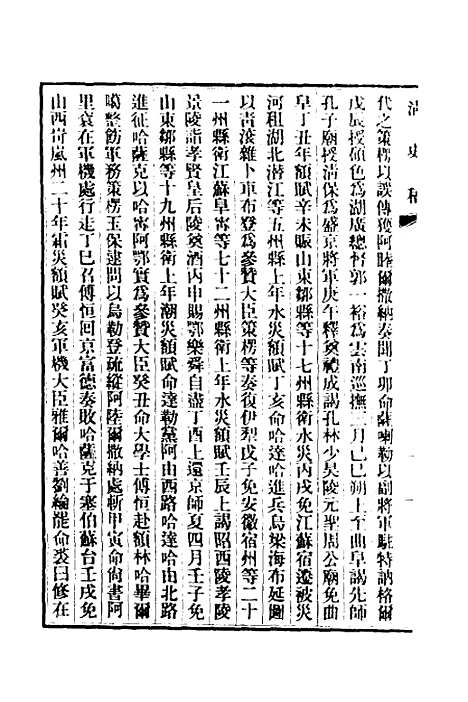 清史稿
代之策楞以誤傳獲阿睦爾撒納奏聞丁卯命薩喇勒以副將軍駐特訥格爾
戊辰授碩色爲湖廣總督郭一裕爲雲南巡撫三月己巳朔上至曲阜謁先師
孔子廟授清保爲盛京將軍庚午釋奠禮成謁孔林少昊陵元聖周公廟免曲
阜丁丑年額賦辛未賑山東鄒縣等十七州縣衛水災丙戌免江蘇宿遷被災
河租湖北潛江等五州縣上年水災額賦丁亥命哈達哈進兵烏梁海布延圖
以青滾雜卜車布登爲參贊大臣策楞等奏復伊犁戊子免安徽宿州等二十
一州縣衛江蘇阜寧等七十二州縣衛上年水災額賦壬辰上謁昭西陵孝陵
景陵詣孝賢皇后陵奠酒丙申賜鄂樂舜自盡丁酉上還京師夏四月壬子免
山東鄒縣等十九州縣衛上年潮災額賦命達勒黨阿由西路哈達哈由北路
進征哈薩克以哈甯阿鄂實爲參贊大臣癸丑命大學士傅恒赴額林哈畢爾
噶整飭軍務策楞玉保逮問以烏勒登疏縱阿睦爾撒納處斬甲寅命尚書阿
里袞在軍機處行走丁巳召傅恒回京富德奏敗哈薩克于塞伯蘇台壬戌免
山西岢嵐州二十年霜災額賦癸亥軍機大臣雅爾哈善劉綸罷命裘曰修在